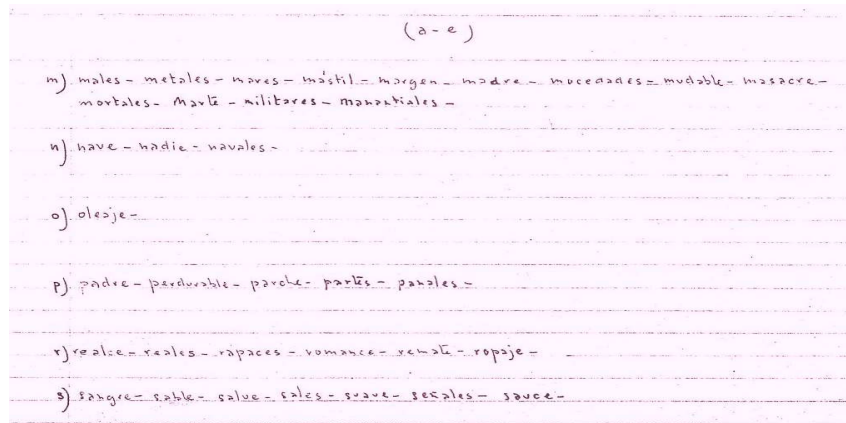 (a-e)
m) males - metales - mares - mástil - margen - madre - mocedades - mudable - masacre -
mortales - Marte - militares - manantiales -
n) nave - nadie - navales -
o) oleaje -
p) padre - perdurable - parche - partes - panales -
r) realce - reales - rapaces - romance - remate - ropaje -
s) sangre - sable - salve - sales - suave - señales - sauce -